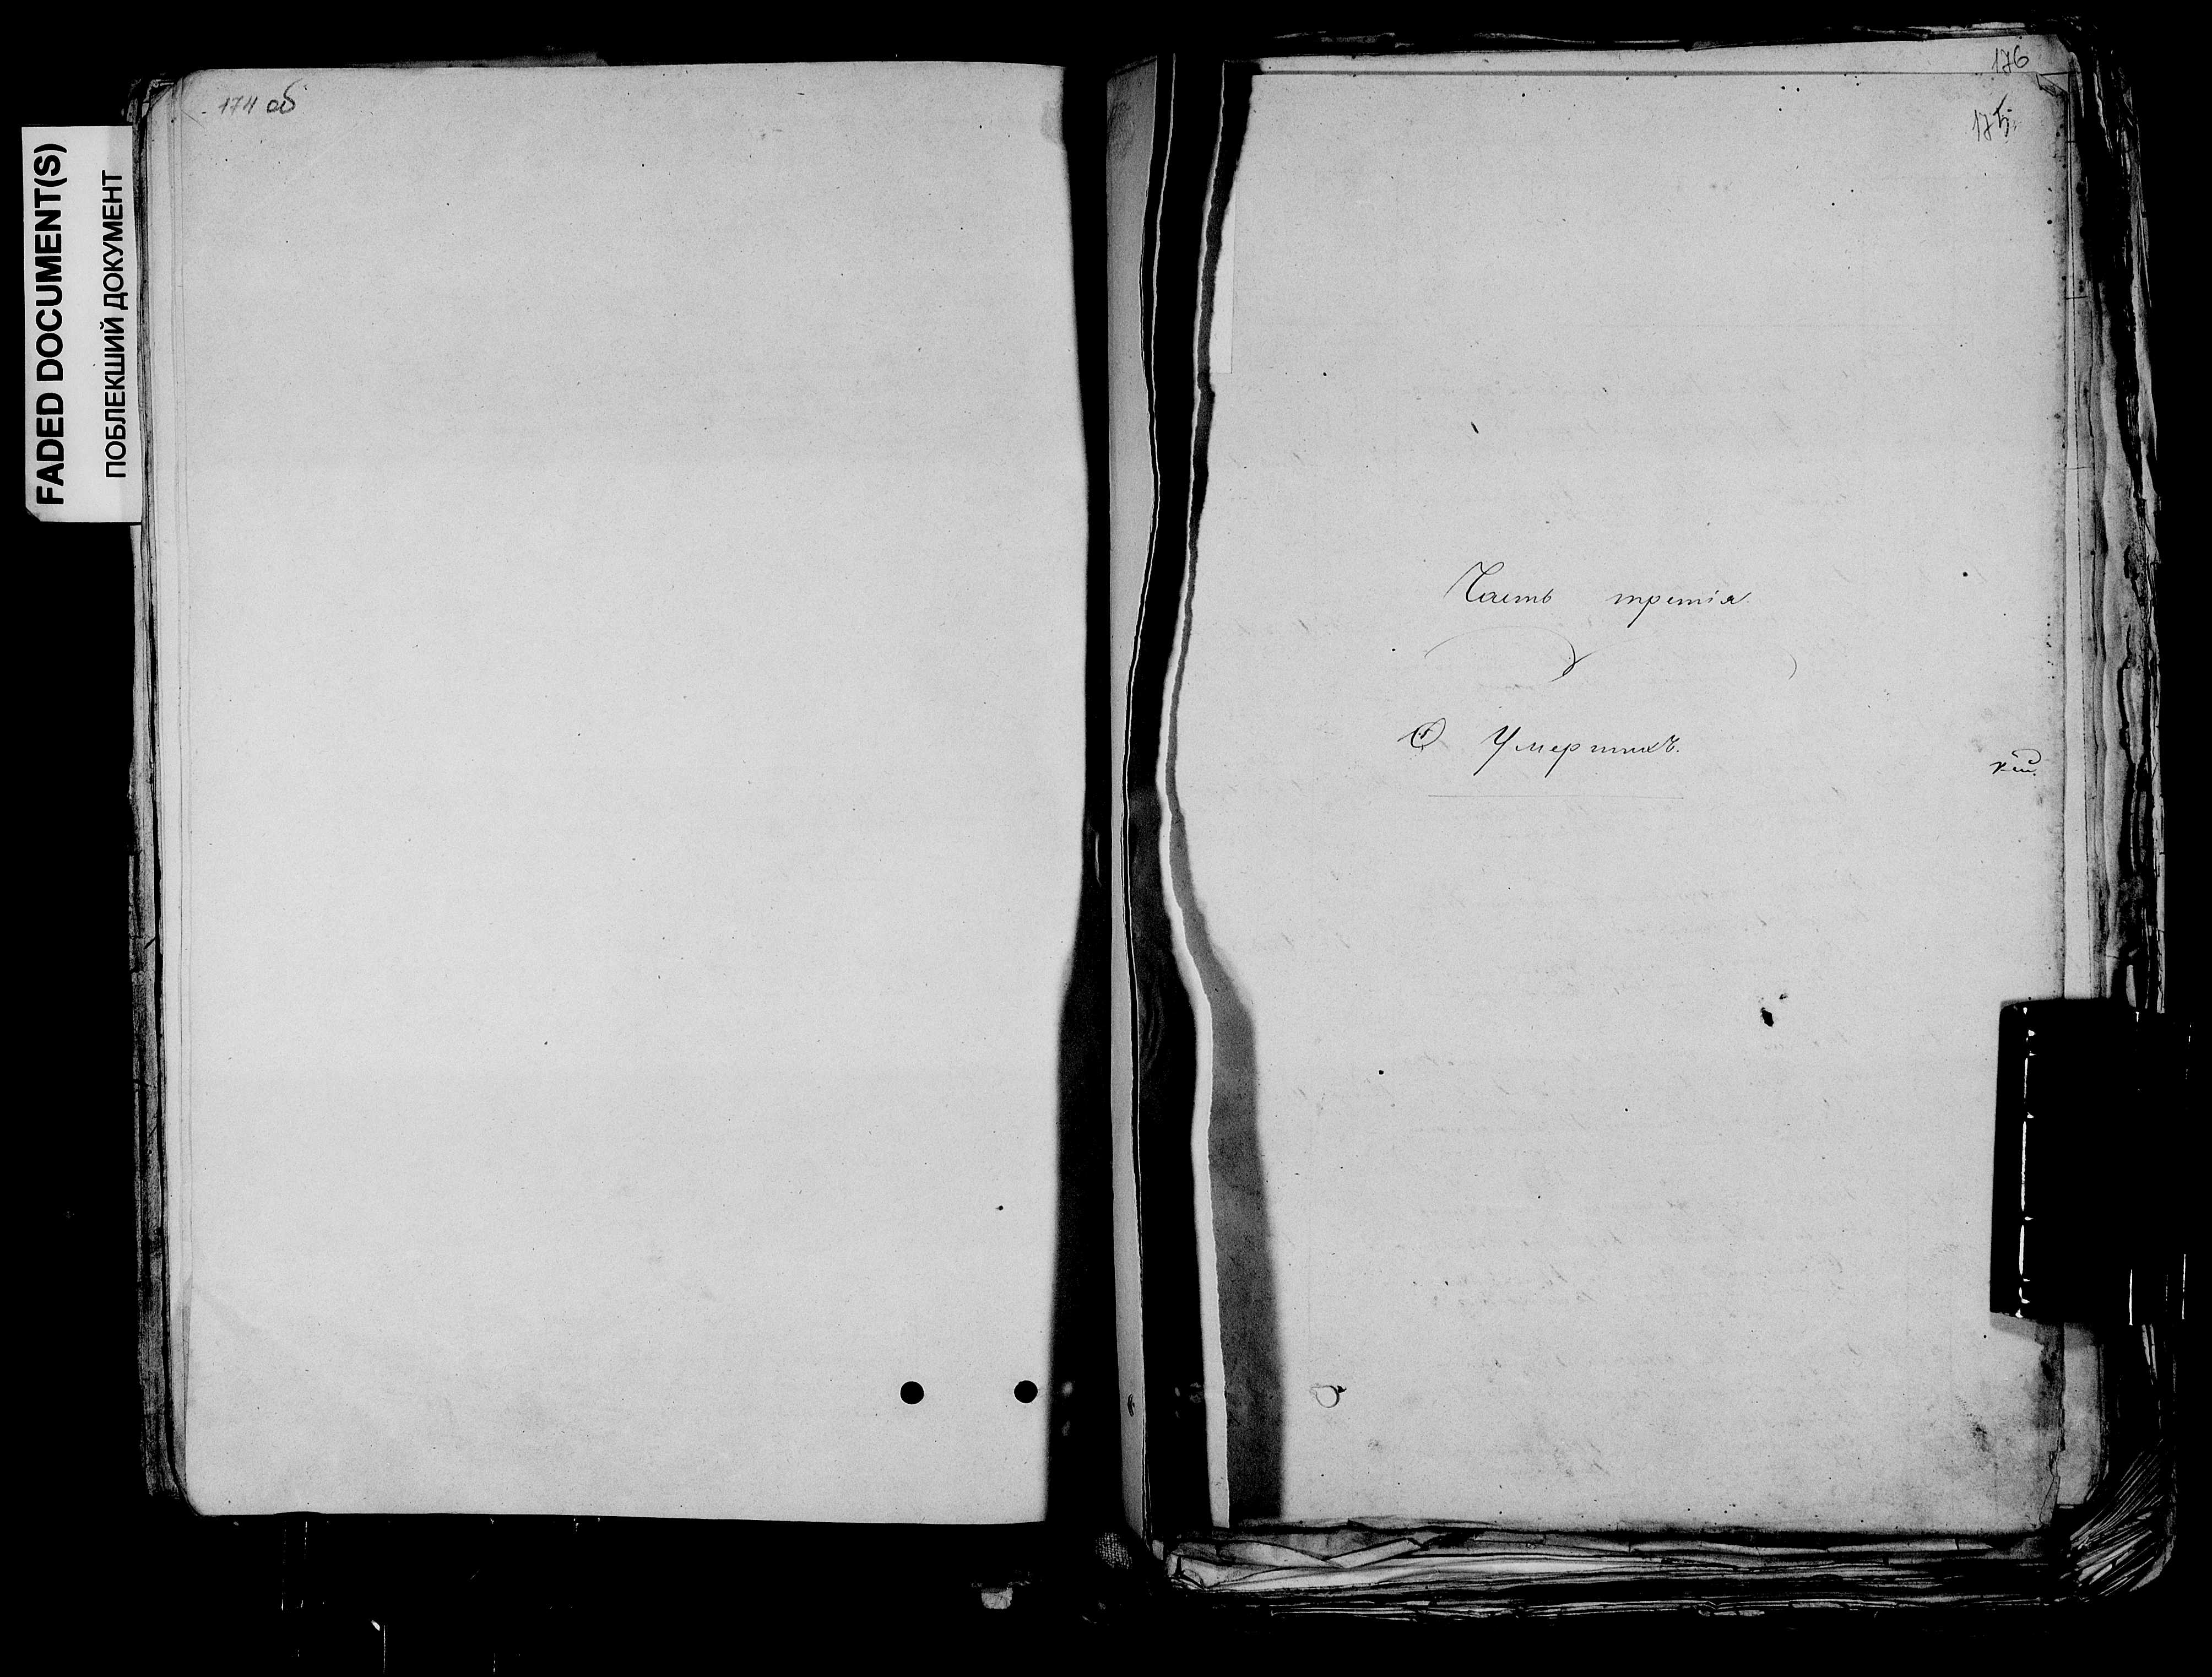 FADED DOCUMENT(S)
ПОБЛЕКШИЙ ДОКУМЕНТ
174 об
176
175
Часть третія.
О Умершихъ.